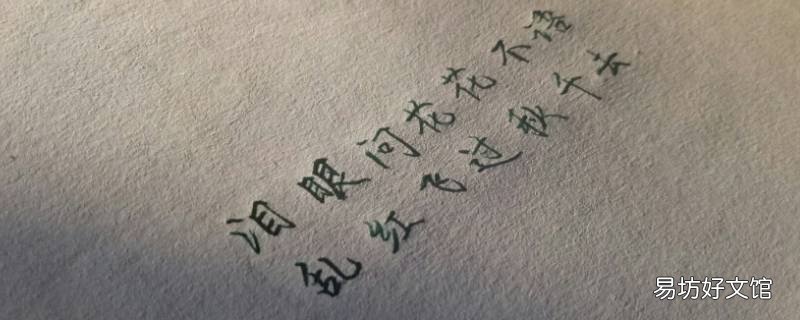 泪眼问花花不语
乱红飞过秋千去
易坊好文馆